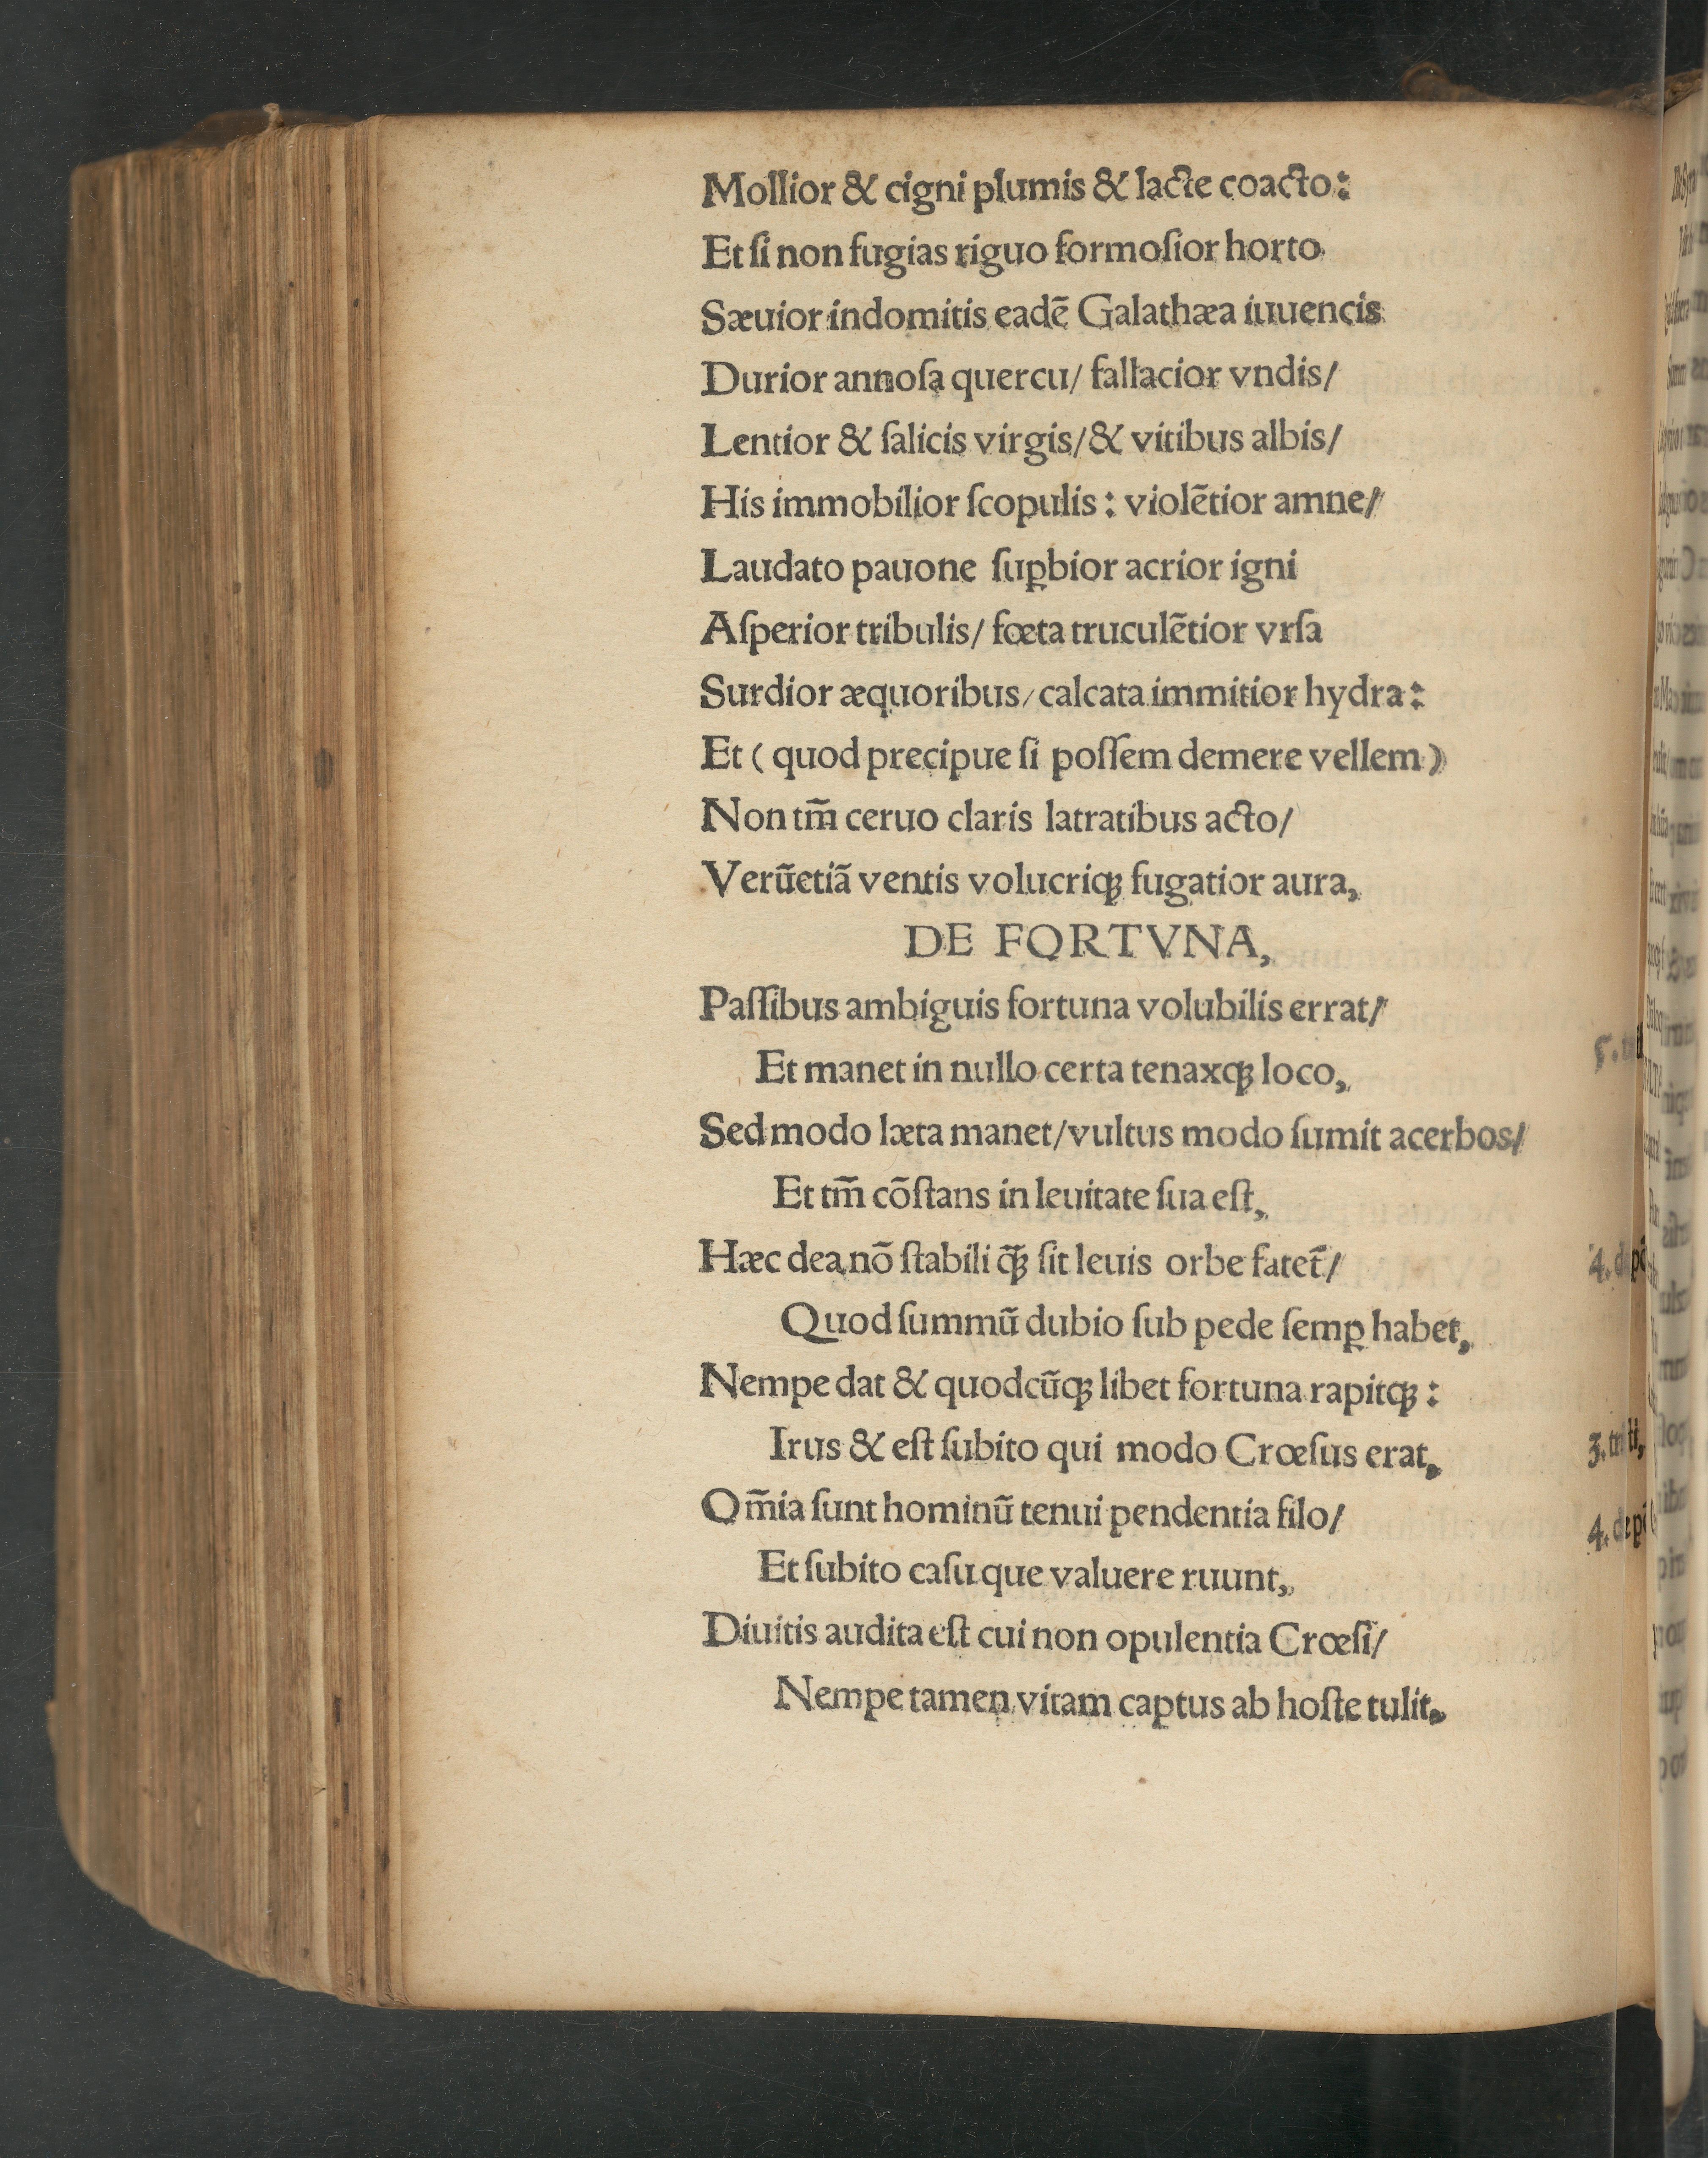 Mollior & cigni plumis & lacte coacto:
Et ſi non fugias riguo formoſior horto
Sæuior indomitis eadē Galathæa iuuencis
Durior annoſa quercu/ fallacior vndis/
Lentior & ſalicis virgis/& vitibus albis/
His immobilior ſcopulis: violētior amne/
Laudato pauone ſuꝑbior acrior igni
Aſperior tribulis/ fœta truculētior vrſa
Surdior æquoribus/ calcata immitior hydra:
Et ( quod precipue ſi poſſem demere vellem)
Non tm̄ ceruo claris latratibus acto/
Verūetiā ventis volucriqꝫ fugatior aura,
DE FORTVNA,
Paſſibus ambiguis fortuna volubilis errat/
Et manet in nullo certa tenaxqꝫ loco,
Sed modo læta manet/vultus modo ſumit acerbos/
Et tm̄ cōſtans in leuitate ſua eſt,
Hæc dea nō ſtabili q̄ꝫ ſit leuis orbe fatet̄/
Quod ſummū dubio ſub pede ſemꝑ habet,
Nempe dat & quodcūqꝫ libet fortuna rapitqꝫ:
Irus & eſt ſubito qui modo Crœſus erat,
Om̄ia ſunt hominū tenui pendentia filo/
Et ſubito caſu que valuere ruunt,
Diuitis audita eſt cui non opulentia Crœſi/
Nempe tamen vitam captus ab hoſte tulit,